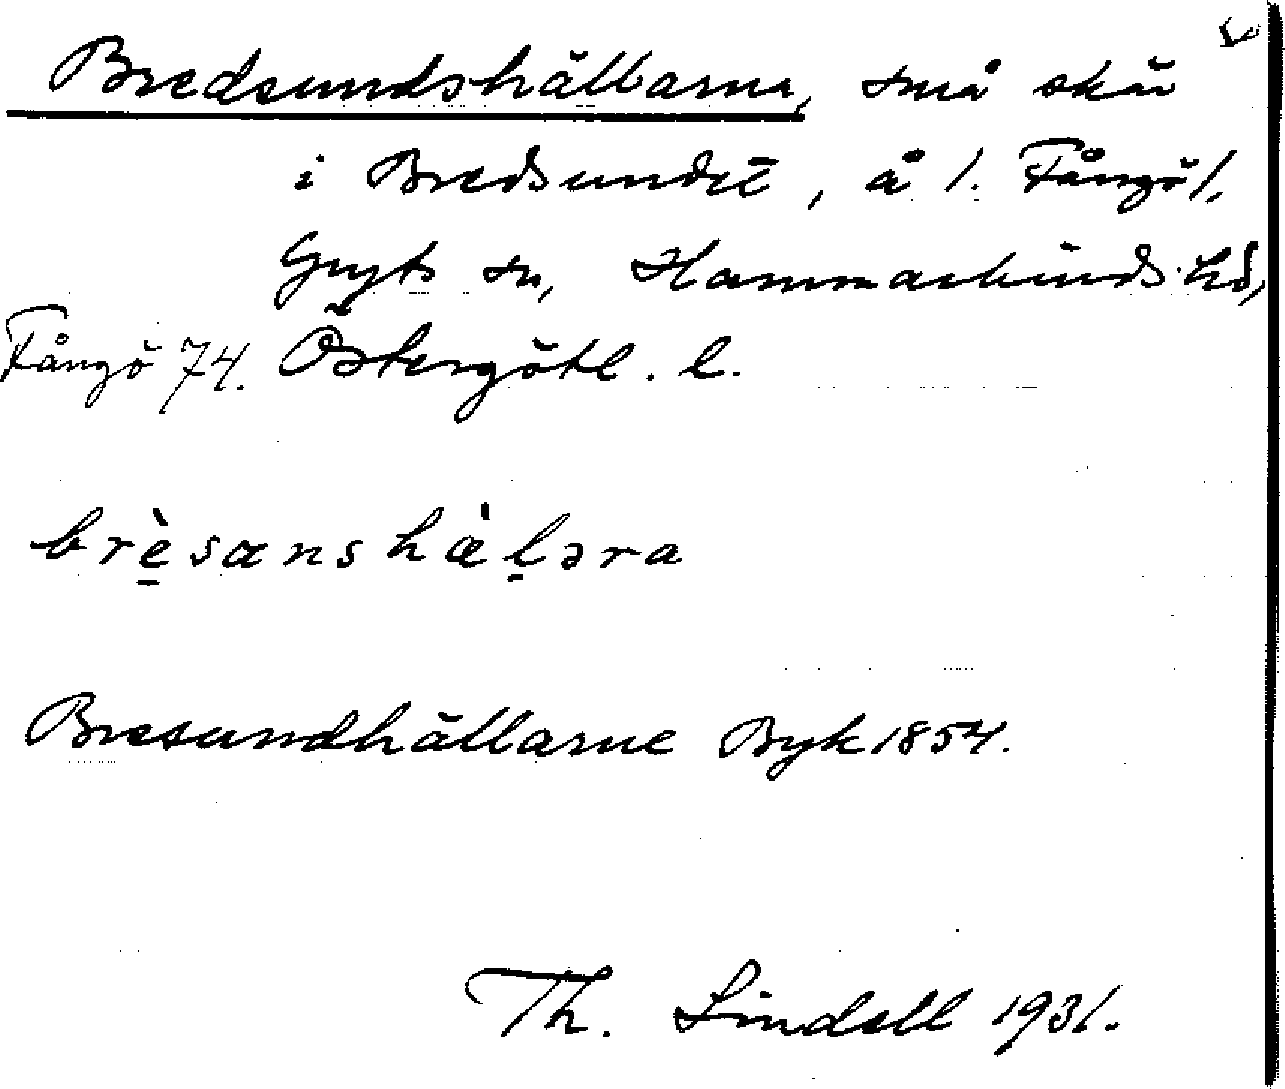 Bredsundshällarna, små skär
i Bredsundet, å /. Fångö /.
Gryts sn, Hammarkinds hd,
Fångö 74. Östergötl. l.
brèsanshæ̀ḷəra
Bresundhällarne Byk 1854.
Th. Lindell 1931.